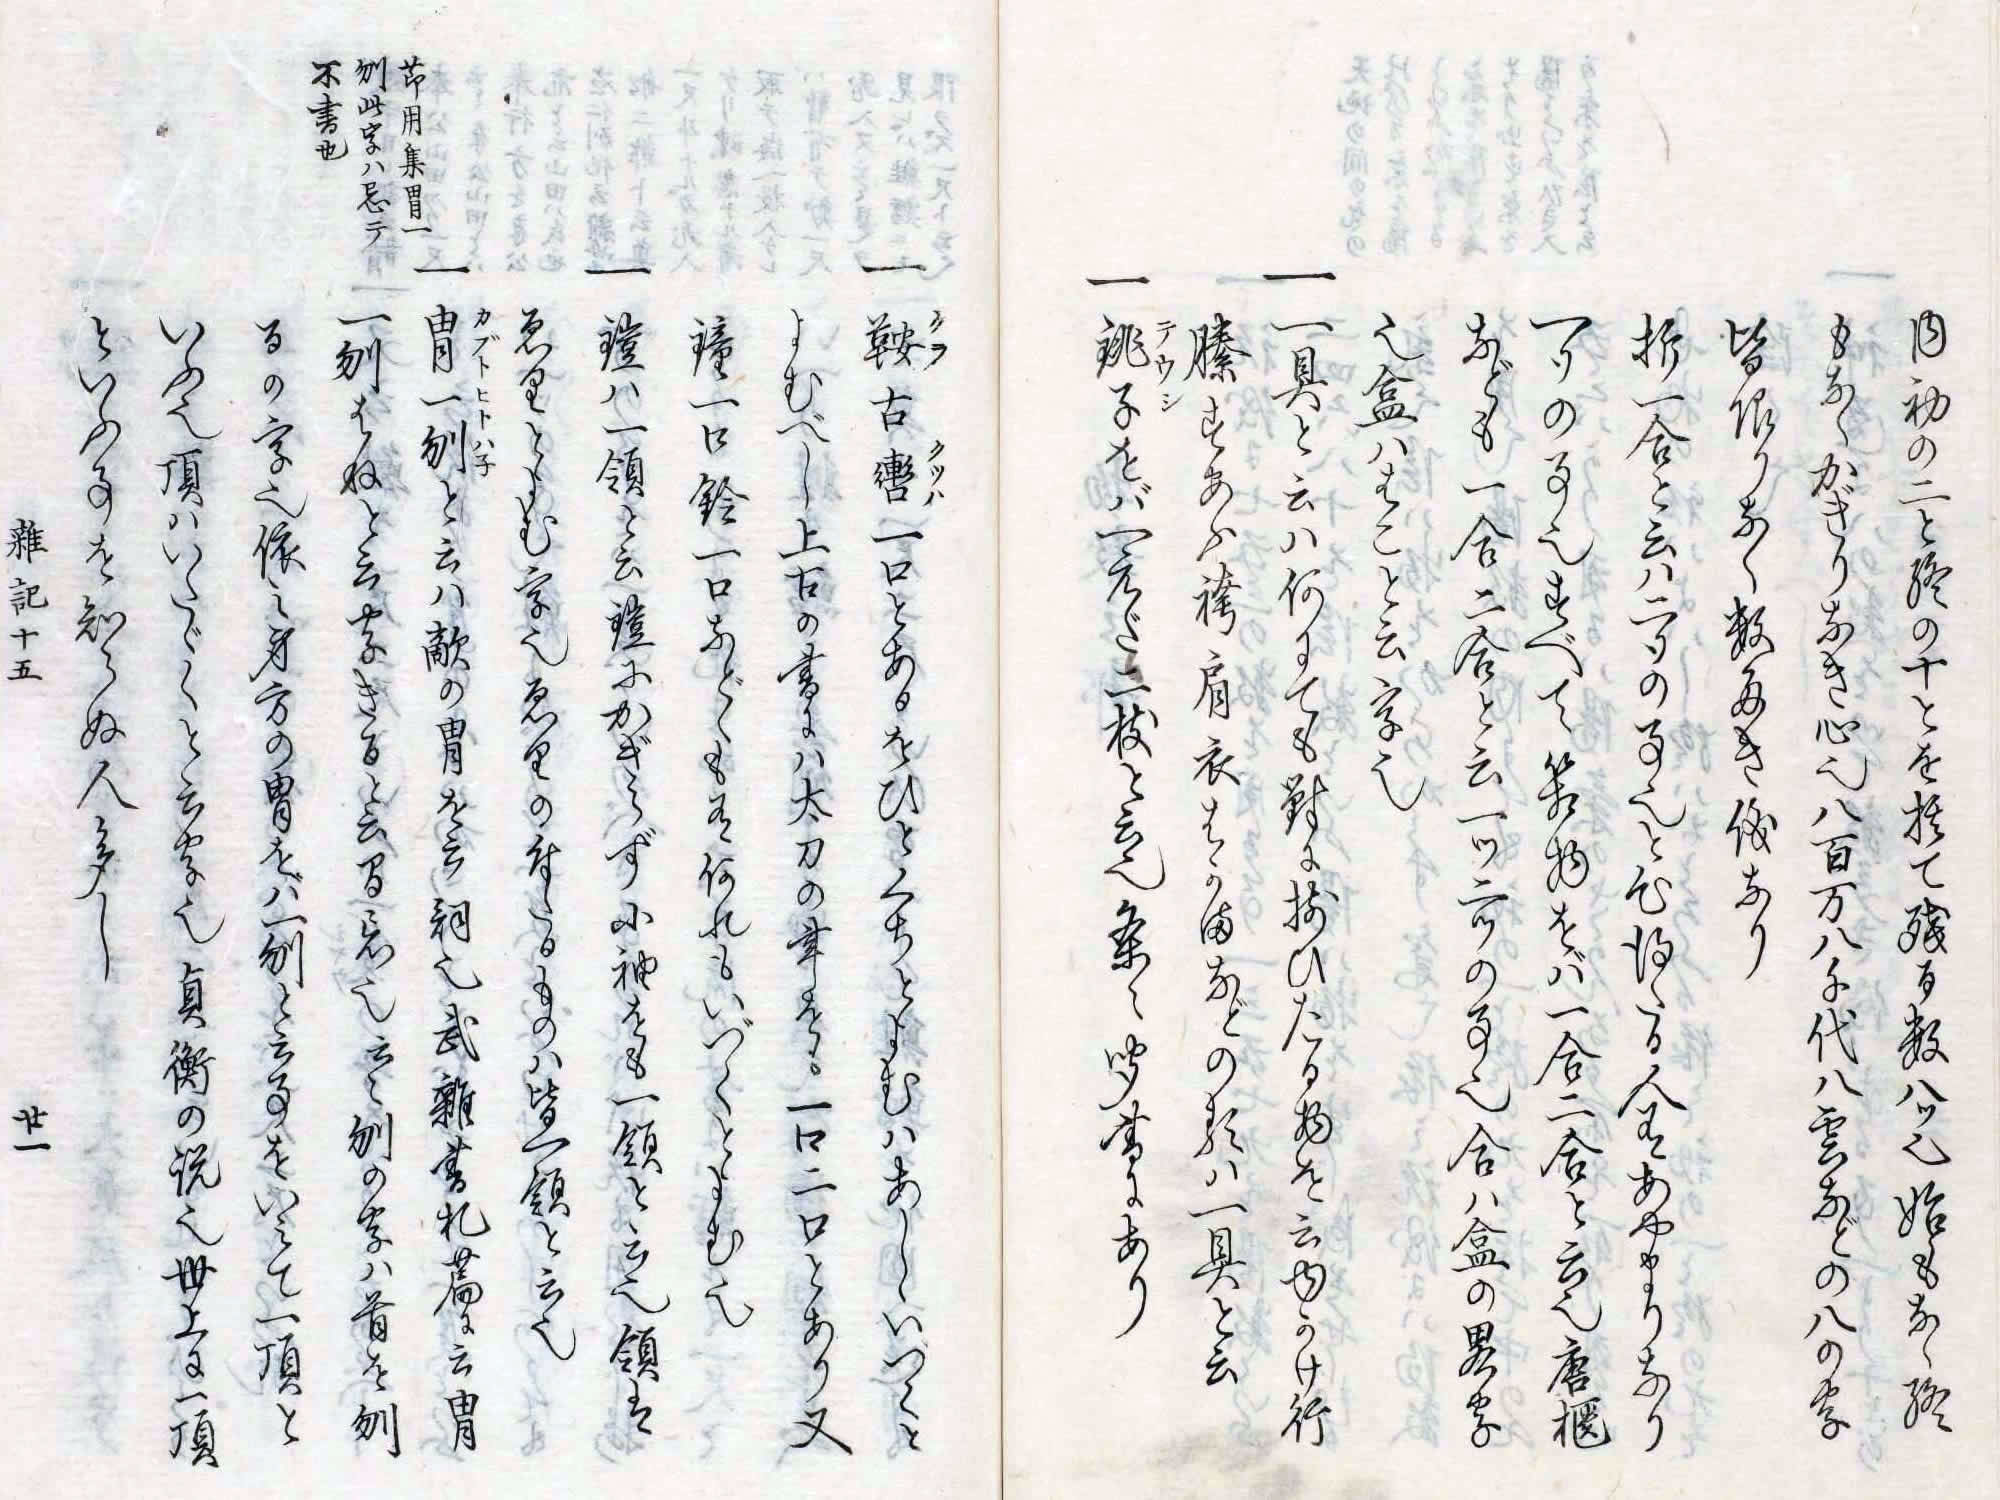 内初の二と終の十とを捨て残る数八ツ也始もなく終
もなくかぎりなき心也八百万八千代八雲などの八の字
皆限りなく数多き儀なり
折一合と云ハ二ツの事也と心得たる人有あやまりなり
一ツの事也すべて箱物をバ一合二合と云也唐櫃
なども一合二合と云一ツ二ツの事也合ハ盒の畧字
也盒ハはこと云字也
一 一具と云ハ何にても對に揃ひたる物を云物かけ行
縢すあふ袴肩衣はかまなどの類ハ一具と云
一 銚子をバ一えだ二枝と云也条々聞書にあり
テウシ
一 鞍古轡一口とあるをひとくちとよむハあしくいづくと
クラ
クツハ
よむべし上古の書にハ太刀の事をも一口二口とあり又
鐘一口鈴一口なども有何れもいづくとよむ也
一 鎧ハ一領と云鎧にかぎらず小袖をも一領と云也領は
ゑりとよむ字也ゑりの有たるものハ皆一領と云也
一 冑一刎と云ハ敵の冑を云詞也武雑書札篇に云冑
カブトヒトハ子
一刎はねと云字きると云間忌也云々刎の字ハ首を刎
るの字也依之身方の冑をバ一刎と云事をいミて一頂と
いふ也頂ハいたゞくと云字也貞衡の説也世上に一頂
といふ事を知らぬ人多し
節用集冑一
刎此字ハ忌テ
不書也
雜記十五
廿一